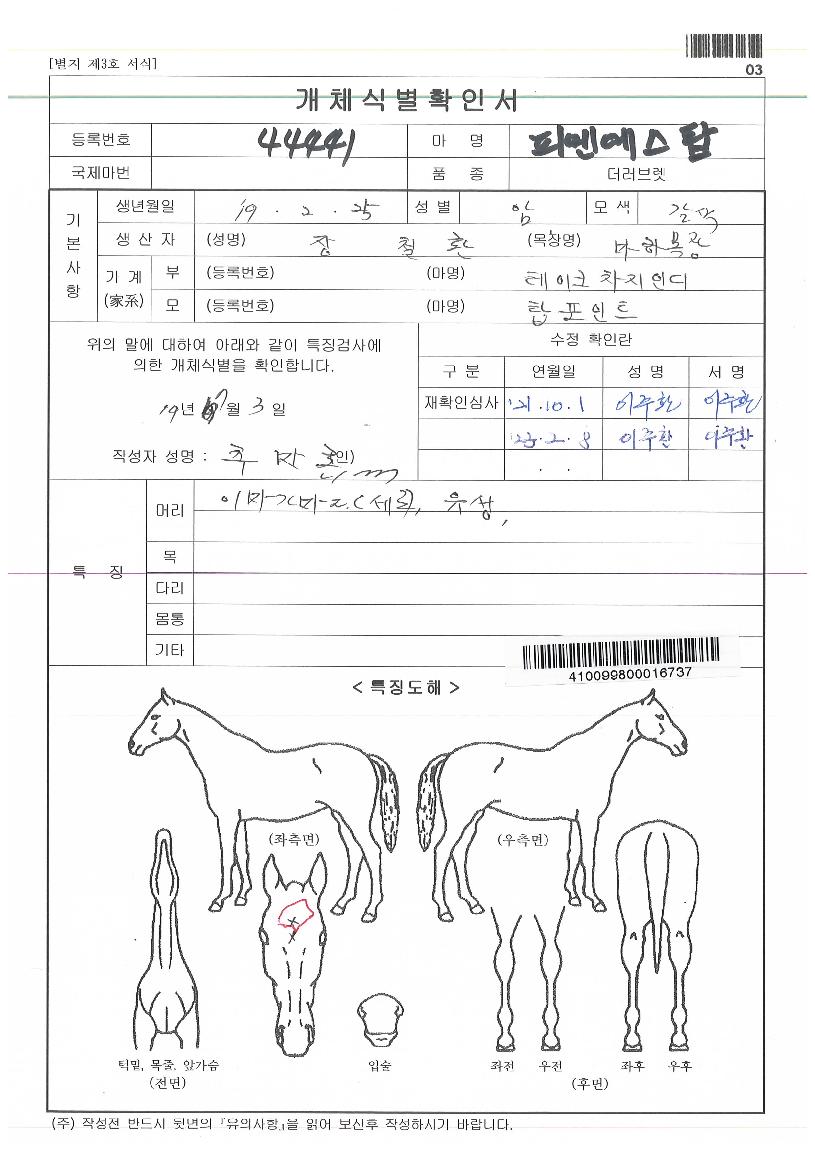 [별지 제3호 서식]
03
개체식별확인서
등록번호 44441 마 명 피엔에스탑
국제마번 품 종 더러브렛
기본사항
생년월일 19 . 2 . 25 성 별 암 모 색 갈색
생 산 자 (성명) 장 철 환 (목장명)
기 계 (家系) 부 (등록번호) (마명) 테이크차지인디
모 (등록번호) (마명) 탑포인트
위의 말에 대하여 아래와 같이 특징검사에
의한 개체식별을 확인합니다.
19년 월 3 일
작성자 성명 :
수정 확인란
구 분 연월일 성 명 서 명
재확인심사 '21.10.1 이주환 이주환
'23.2.8 이주환 이주환
. .
특 징
머리 유성,
목
다리
몸통
기타
410099800016737
< 특징도해 >
(좌측면) (우측면)
턱밑, 목줄, 앞가슴
(전면)
입술
좌전 우전 좌후 우후
(후면)
(주) 작성전 반드시 뒷면의 『유의사항』을 읽어 보신후 작성하시기 바랍니다.